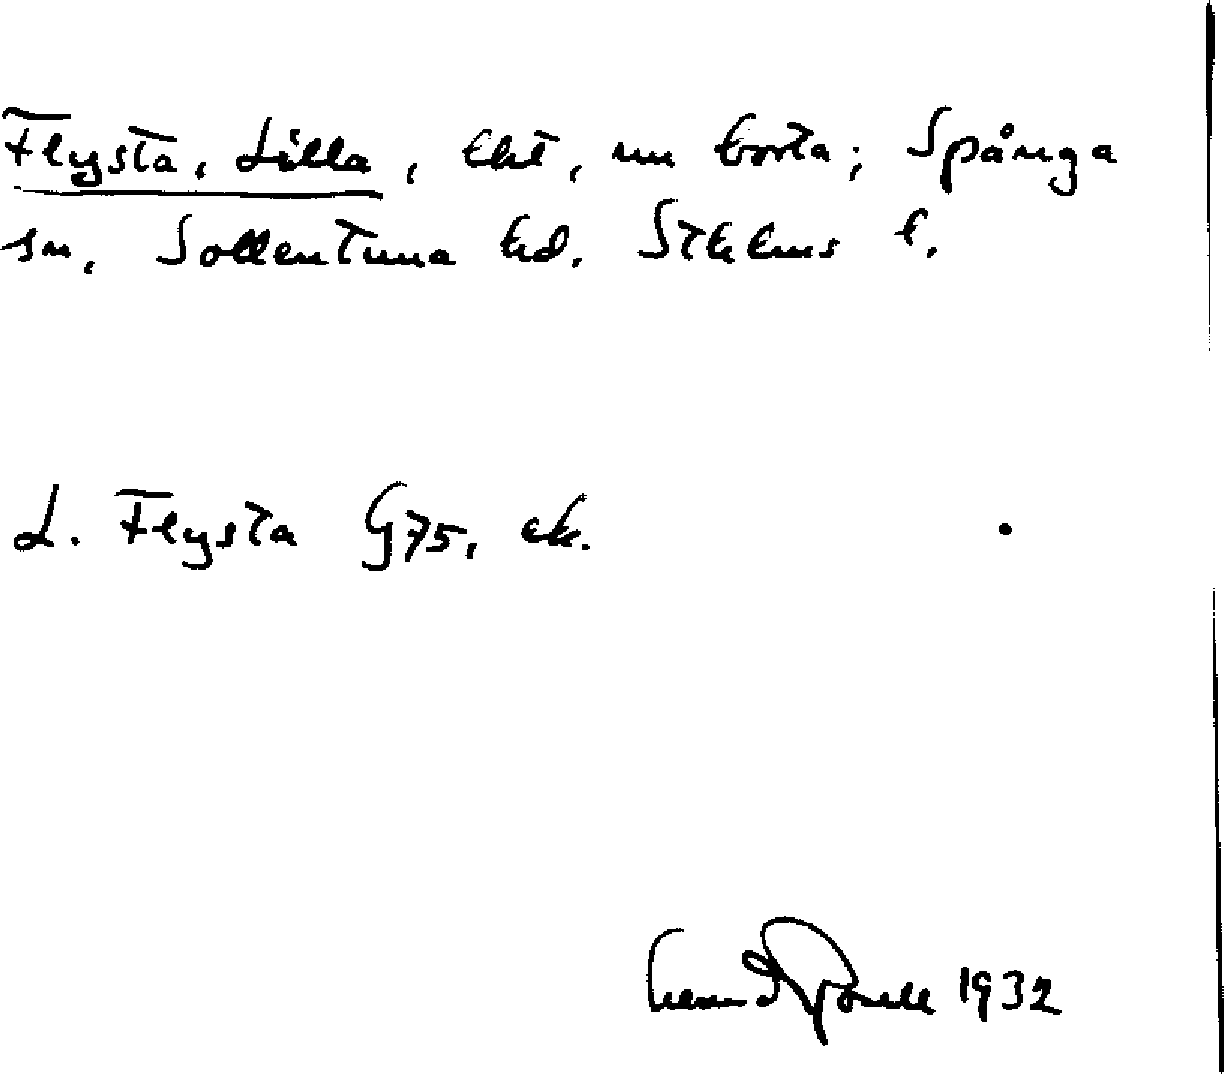 Flysta, Lilla, lht, nu borta; Spånga
sn, Sollentuna hd. Sthlms l.
L. Flysta G75, ek.
1932